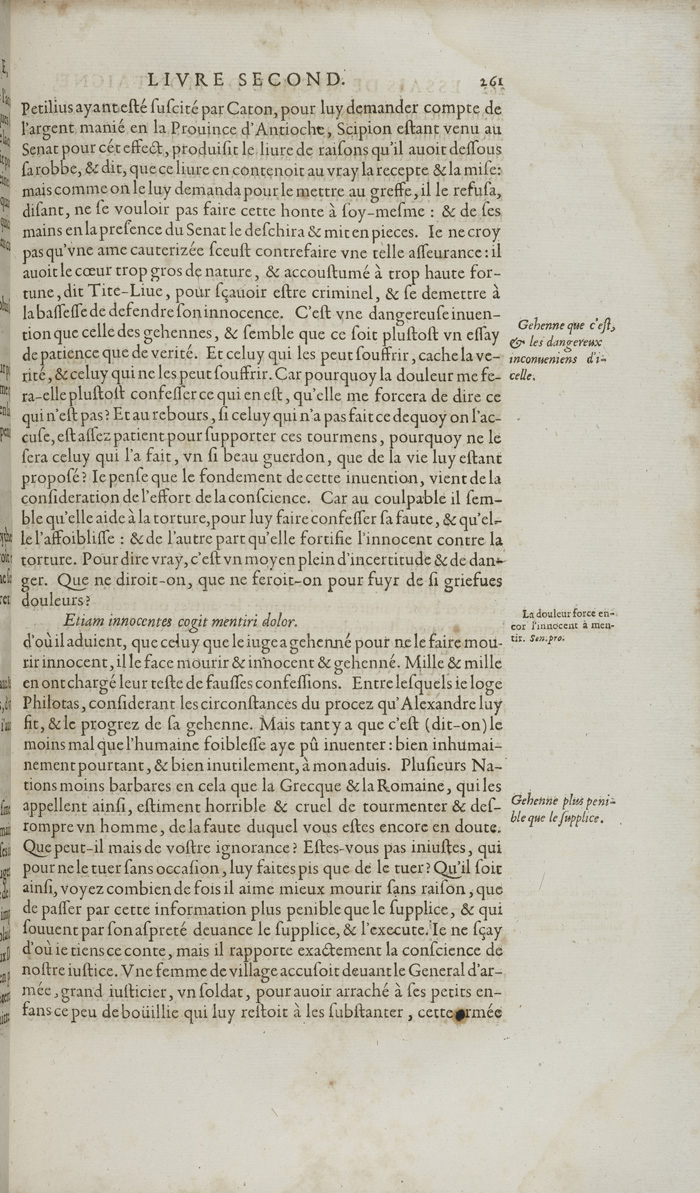 LIVRE SECOND. 261
Petilius ayant esté suscité par Caton, pour luy demander compte de
l'argent manié en la Prouince d'Antioche, Scipion estant venu au
Senat pour cét effect, produisit le liure de raisons qu'il auoit dessous
sa robbe, & dit, que ce liure en contenoit au vray la recepte & la mise:
mais comme on le luy demanda pour le mettre au greffe, il le refusa,
disant, ne se vouloir pas faire cette honte à soy-mesme : & de ses
mains en la presence du Senat le deschira & mit en pieces. Ie ne croy
pas qu'vne ame cauterizée sceust contrefaire vne telle asseurance : il
auoit le cœur trop gros de nature, & accoustumé à trop haute for-
tune, dit Tite-Liue, pour sçauoir estre criminel, & se demettre à
la bassesse de defendre son innocence. C'est vne dangereuse inuen-
tion que celle des gehennes, & semble que ce soit plustost vn essay
de patience que de verité. Et celuy qui les peut souffrir, cache la ve-
rité, & celuy qui ne les peut souffrir. Car pourquoy la douleur me fe-
ra-elle plustost confesser ce qui en est, qu'elle me forcera de dire ce
qui n'est pas? Et au rebours, si celuy qui n'a pas fait ce dequoy on l'ac-
cuse, est assez patient pour supporter ces tourmens, pourquoy ne le
sera celuy qui l'a fait, vn si beau guerdon, que de la vie luy estant
proposé? Ie pense que le fondement de cette inuention, vient de la
consideration de l'effort de la conscience. Car au coulpable il sem-
ble qu'elle aide à la torture, pour luy faire confesser sa faute, & qu'el-
le l'affoiblisse : & de l'autre part qu'elle fortifie l'innocent contre la
torture. Pour dire vray, c'est vn moyen plein d'incertitude & de dan-
ger. Que ne diroit-on, que ne feroit-on pour fuyr de si griefues
douleurs?
Etiam innocentes cogit mentiri dolor.
d'où il aduient, que celuy que le iuge a gehenné pour ne le faire mou-
rir innocent, il le face mourir & innocent & gehenné. Mille & mille
en ont chargé leur teste de fausses confessions. Entre lesquels ie loge
Philotas, considerant les circonstances du procez qu'Alexandre luy
fit, & le progrez de sa gehenne. Mais tant y a que c'est (dit-on) le
moins mal que l'humaine foiblesse aye pû inuenter : bien inhumai-
nement pourtant, & bien inutilement, à mon aduis. Plusieurs Na-
tions moins barbares en cela que la Grecque & la Romaine, qui les
appellent ainsi, estiment horrible & cruel de tourmenter & des-
rompre vn homme, de la faute duquel vous estes encore en doute.
Que peut-il mais de vostre ignorance? Estes-vous pas iniustes, qui
pour ne le tuer sans occasion, luy faites pis que de le tuer? Qu'il soit
ainsi, voyez combien de fois il aime mieux mourir sans raison, que
de passer par cette information plus penible que le supplice, & qui
souuent par son aspreté deuance le supplice, & l'execute. Ie ne sçay
d'où ie tiens ce conte, mais il rapporte exactement la conscience de
nostre iustice. Vne femme de village accusoit deuant le General d'ar-
mée, grand iusticier, vn soldat, pour auoir arraché à ses petits en-
fans ce peu de boüillie qui luy restoit à les substanter, cette armée
Gehenne que c'est,
& les dangereux
inconueniens d'i-
celle.
La douleur force en-
cor l'innocent à men-
tir. Sen. pro.
Gehenne plus peni-
ble que le supplice.